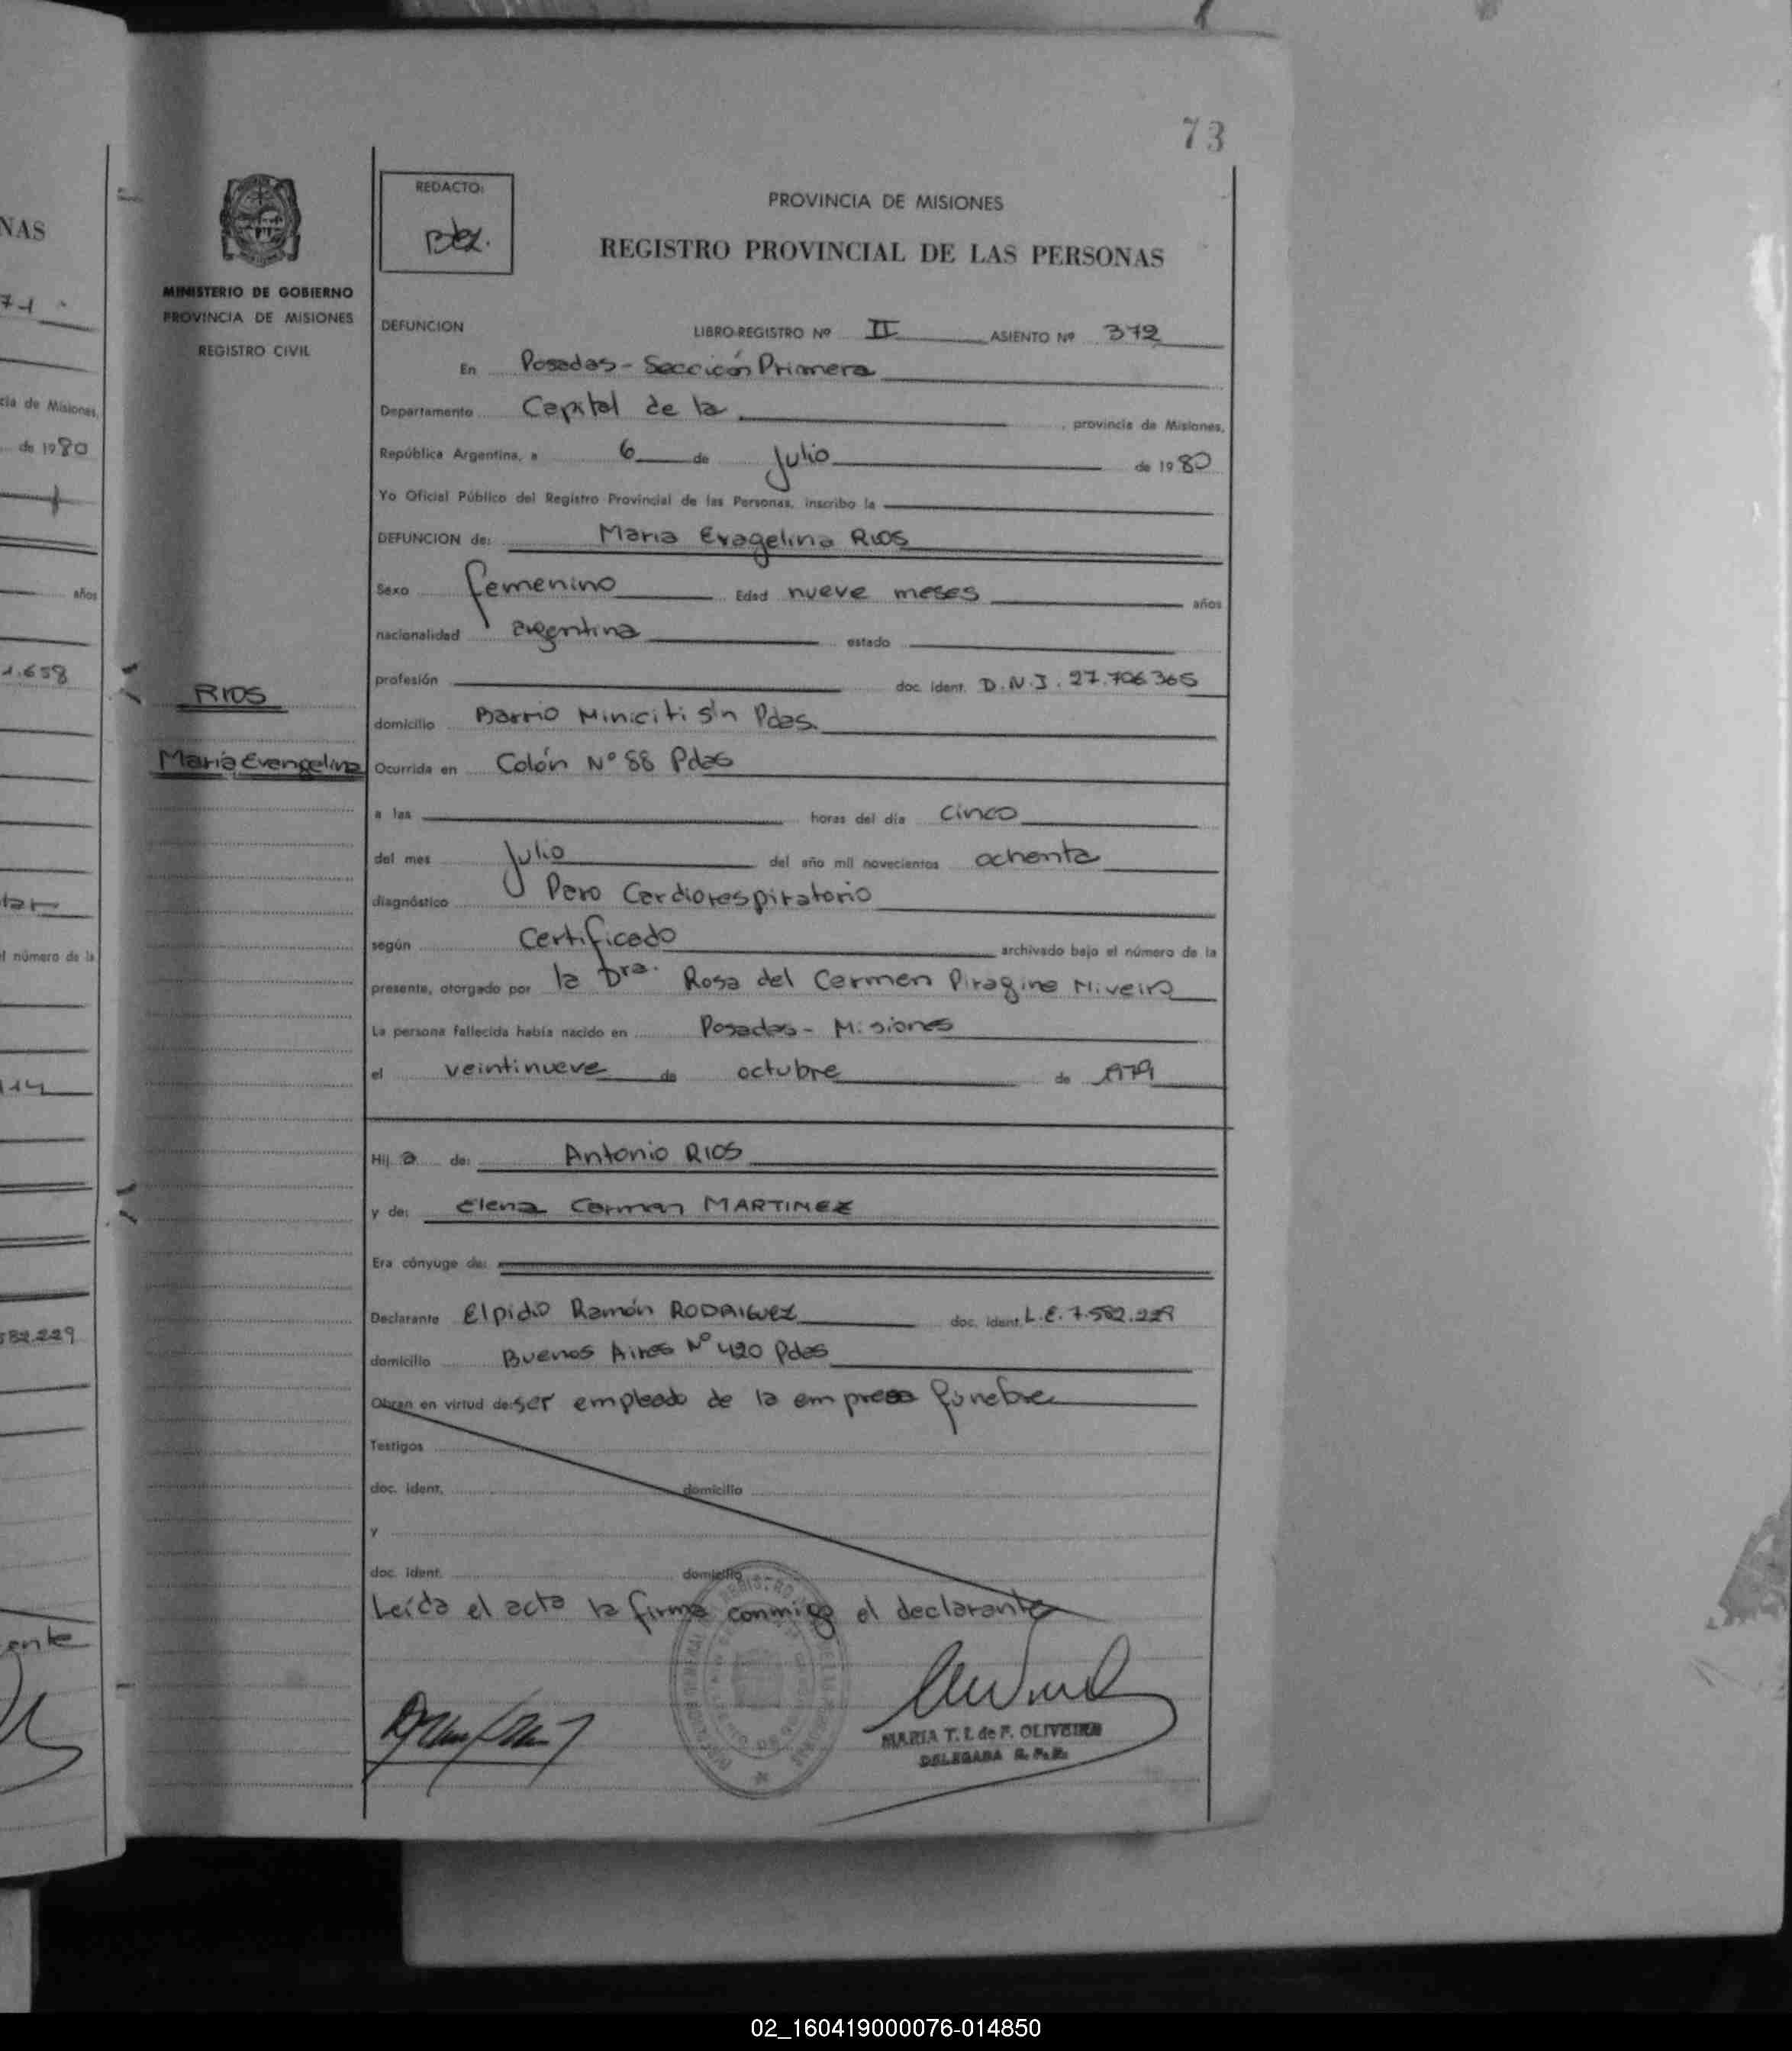 73
NAS
71
cia de Misiones,
de 1980
años
1.658
tar
el número de la
114
582.229
ente
MINISTERIO DE GOBIERNO
PROVINCIA DE MISIONES
REGISTRO CIVIL
RIOS
María Evangelina
REDACTO:
PROVINCIA DE MISIONES
REGISTRO PROVINCIAL DE LAS PERSONAS
DEFUNCION LIBRO-REGISTRO Nº II ASIENTO Nº 372
En Posadas - Sección Primera
Departamento Capital de la , provincia de Misiones,
República Argentina, a 6 de Julio de 1980
Yo Oficial Público del Registro Provincial de las Personas, inscribo la
DEFUNCION de: Maria Evagelina RIOS
Sexo femenino Edad nueve meses años
nacionalidad argentina estado
profesión doc. ident. D.N.I. 27.706365
domicilio Barrio Miniciti s/n Pdas.
Ocurrida en Colón Nº 88 Pdas
a las horas del día cinco
del mes Julio del año mil novecientos ochenta
diagnóstico Paro Cardiorespiratorio
según Certificado archivado bajo el número de la
presente, otorgado por la Dra. Rosa del Carmen Piragine Niveiro
La persona fallecida había nacido en Posadas - Misiones
el veintinueve de octubre de 1979
Hij a de: Antonio RIOS
y de: Elena Carman MARTINEZ
Era cónyuge de:
Declarante Elpidio Ramón RODRIGUEZ doc. ident. L.E. 7.582.229
domicilio Buenos Aires Nº 420 Pdas
Obran en virtud de: ser empleado de la empresa fúnebre
Testigos
doc. ident. domicilio
y
doc. ident. domicilio
Leída el acta la firma conmigo el declarante
MARIA T. I. de F. OLIVEIRA
DELEGADA R. P. P.
02_160419000076-014850